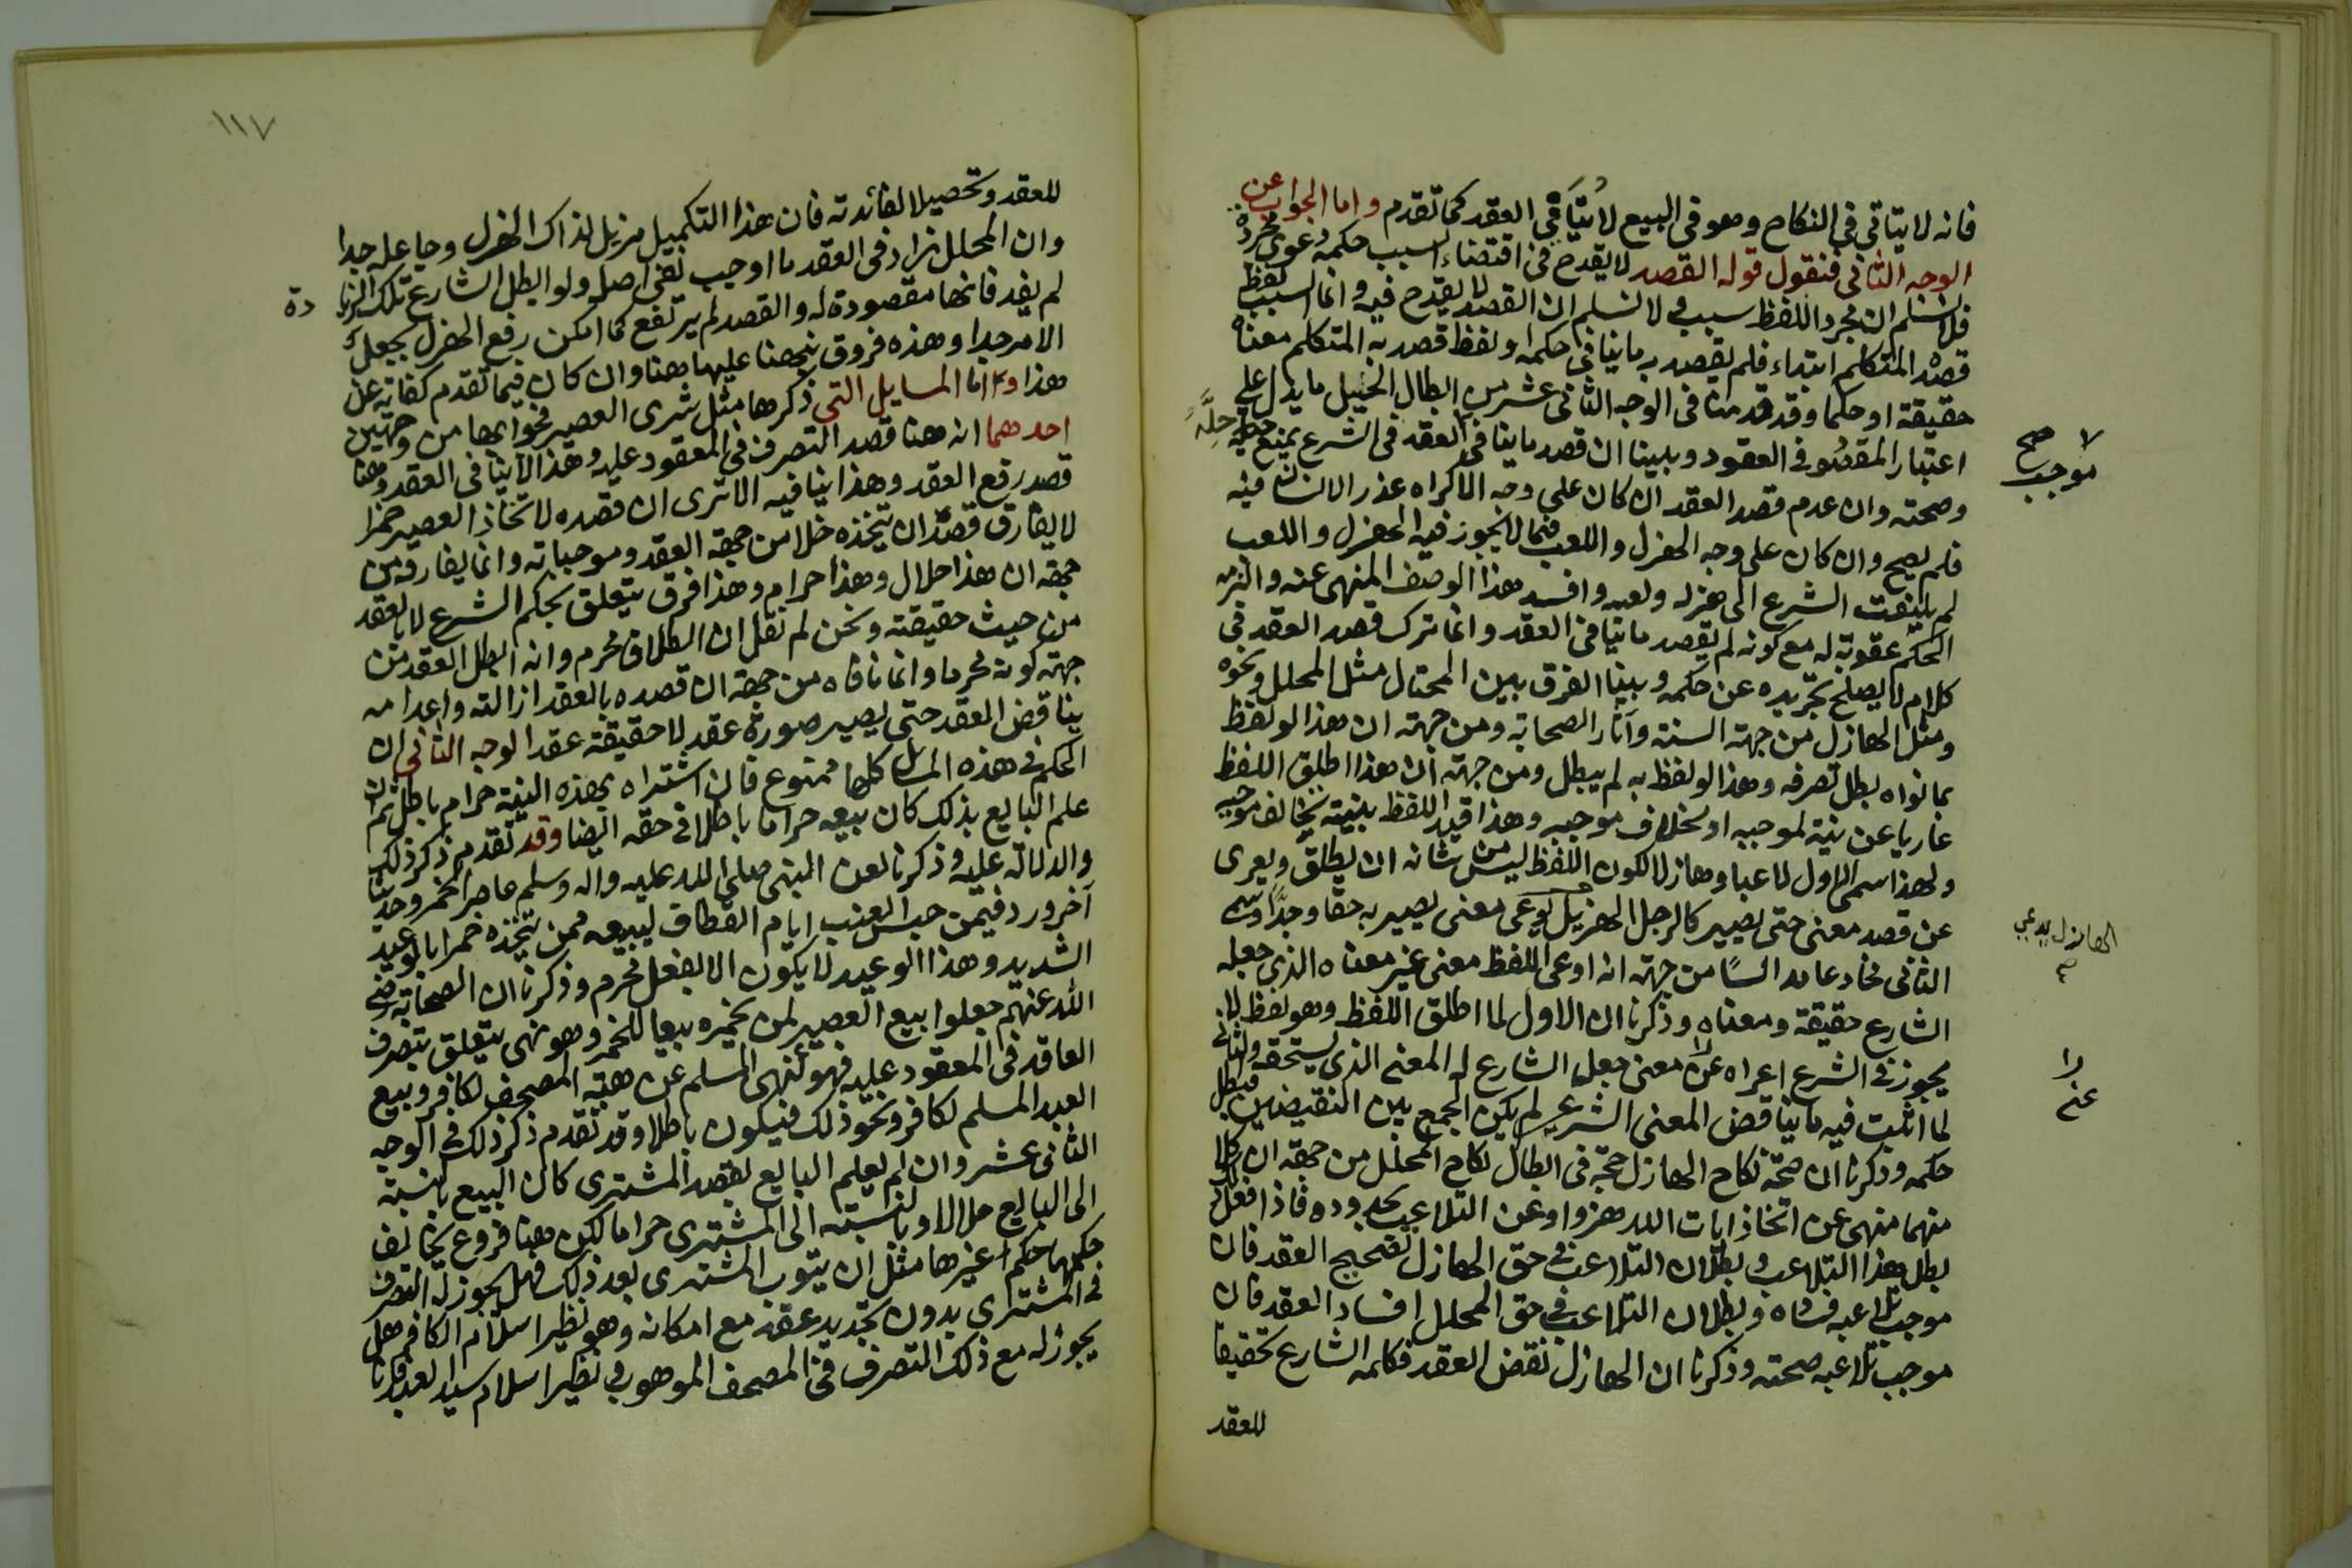 فانه لا يتاتى في النكاح وهو في البيع لا يتاتى في العقد كما تقدم واما الجواب عن
الوجه الثاني فنقول قوله القصد لا يقدح في اقتضاء السبب حكمه دعوى مجردة
فلا نسلم ان مجرد اللفظ سبب ولا نسلم ان القصد لا يقدح فيه وانما السبب لفظ
قصد المتكلم ابتداء فلم يقصد به ما ينافي حكمه او لفظ قصد به المتكلم معناه
حقيقة او حكما وقد قدمنا في الوجه الثاني عشر من ابطال الحيل ما يدل على
اعتبار المقصود في العقود وبينا ان قصد ما ينافي العقد في الشرع يمنع حله
حِلَّه
وصحته وان عدم قصد العقد ان كان على وجه الاكراه عذر الانسان فيه
لا
موجب صح
فلم يصح وان كان على وجه الهزل واللعب فيما لا يجوز فيه الهزل واللعب
لم يلتفت الشرع الى هزله ولعبه وافسد هذا الوصف المنهي عنه والزمه
الحكم عقوبة له مع كونه لم يقصد ما ينافي العقد وانما ترك قصد العقد في
كلام لا يصلح تجريده عن حكمه وبينا الفرق بين المحتال مثل المحلل ونحوه
ومثل الهازل من جهة السنة وآثار الصحابة ومن جهة ان هذا لو لفظ
بما نواه بطل تصرفه وهذا لو لفظ به لم يبطل ومن جهة ان هذا اطلق اللفظ
عاريا عن نية لموجبه او لخلاف موجبه وهذا قيد اللفظ بنية تخالف موجبه
ولهذا سمي الاول لاعبا وهازلا لكون اللفظ ليس من شانه ان يطلق ويعرى
عن قصد معنى حتى يصير كالرجل الهزيل يوعي معنى يصير به حقا وجدًّا وسمي
الهازل يدعي
الثاني مخادعا مدالسًا من جهة انه اوعى اللفظ معنى غير معناه الذي جعله
الشارع حقيقة ومعناه وذكرنا ان الاول لما اطلق اللفظ وهو لفظ لا
يجوز في الشرع اعراه عن معنى جعل الشارع له المعنى الذي يستحقه والثاني
عن
لما اثبت فيه ما يناقض المعنى الشرعي لم يكن الجمع بين النقيضين فبطل
حكمه وذكرنا ان صحة نكاح الهازل حجة في ابطال نكاح المحلل من جهة ان كلا
منهما منهي عن اتخاذ ايات الله هزوا وعن التلاعب بحدوده فاذا فعل ذلك
بطل هذا التلاعب وبطلان التلاعب في حق الهازل تصحيح العقد فان
موجب تلاعبه فساده وبطلان التلاعب في حق المحلل افساد العقد فان
موجب تلاعبه صحته وذكرنا ان الهازل نقض العقد فكمله الشارع تحقيقا
للعقد
١١٧
للعقد وتحصيلا لفائدته فان هذا التكميل مزيل لذاك الهزل وجاعله جدا
وان المحلل زاد في العقد ما اوجب نفي اصله ولو ابطل الشارع تلك الزيا
دة
لم يفد فانها مقصودة له والقصد لم يرتفع كما امكن رفع الهزل بجعل
الامر جدا وهذه فروق نبهنا عليها هنا وان كان فيما تقدم كفاية عن
هذا واما المسايل التي ذكرها مثل شرى العصير فجوابها من وجهين
احدهما انه هنا قصد التصرف في المعقود عليه وهذا لا ينافي العقد وهنا
قصد رفع العقد وهذا ينافيه الا ترى ان قصده لاتخاذ العصير خمرا
لا يفارق قصد ان يتخذه خلا من جهة العقد وموجباته وانما يفارقه من
جهة ان هذا حلال وهذا حرام وهذا فرق يتعلق بحكم الشرع لا بالعقد
من حيث حقيقته ونحن لم نقل ان الطلاق محرم وانه ابطل العقد من
جهة كونه محرما وانما نافاه من جهة ان قصده بالعقد ازالته واعدامه
يناقض العقد حتى يصير صورة عقد لا حقيقة عقد الوجه الثاني ان
الحكم في هذه المسائل كلها ممنوع فان اشتراه بهذه النية حرام باطل ثم ان
علم البايع بذلك كان بيعه حراما باطلا في حقه ايضا وقد تقدم ذكر ذلك
والدلالة عليه وذكرنا لعن النبي صلى الله عليه واله وسلم عاصر الخمر وحديثا
آخر ورد فيمن حبس العنب ايام القطاف ليبيعه ممن يتخذه خمرا بالوعيد
الشديد وهذا الوعيد لا يكون الا لفعل محرم وذكرنا ان الصحابة رضي
الله عنهم جعلوا بيع العصير لمن يخمره بيعا للخمر وهو نهي يتعلق بتصرف
العاقد في المعقود عليه فهو كنهي المسلم عن هبة المصحف لكافر وبيع
العبد المسلم لكافر ونحو ذلك فيكون باطلا وقد تقدم ذكر ذلك في الوجه
الثاني عشر وان لم يعلم البايع بقصد المشتري كان البيع بالنسبة
الى البايع حلالا وبالنسبة الى المشتري حراما لكن هنا فروع يخالف
حكمها حكم غيرها مثل ان يتوب المشتري بعد ذلك فهل يجوز له التصرف
في المشترى بدون تجديد عقد مع امكانه وهو نظير اسلام الكافر هل
يجوز له مع ذلك التصرف في المصحف الموهوب وفي نظير اسلام سيد العبد فانا